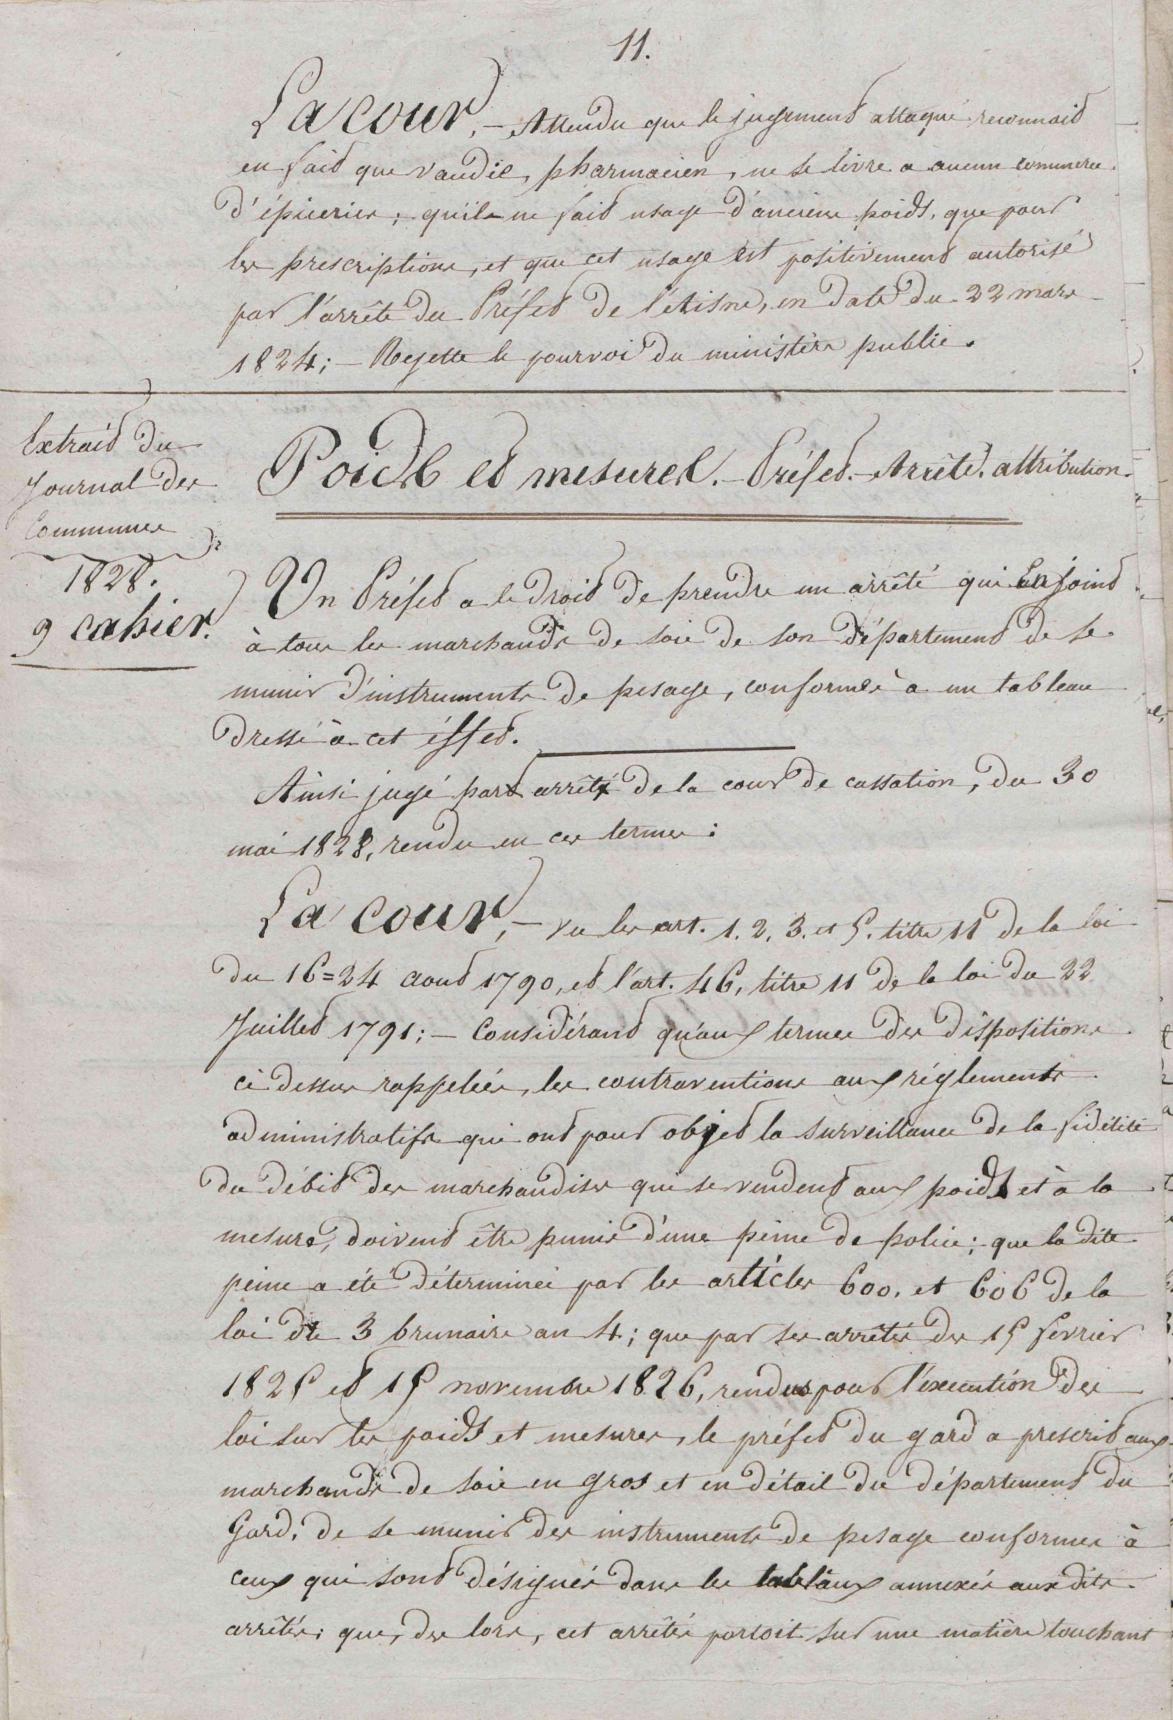 11.
La cour, – Attendu que le jugement attaqué reconnait
en fait que Vaudil, pharmacien, ne se livre a aucun commerce
d'épicerie; qu'ils ne fait usage d'anciens poids, que pour
les prescriptions, et que cet usage est positivement autorisé
par l'arrêté du Préfet de l'Aisne, en date du 22 mars
1824; – Rejette le pourvoi du ministère public.
Extrait du
Journal des
Communes
1828.
9 cahier.
Poids et mesures. – Préfet. – Arrêté. attribution.
Un Préfet a le droit de prendre un arrêté qui enjoint
à tous les marchands de soie de son département de se
munir d'instruments de pesage, conformes à un tableau
dressé à cet éffet.
Ainsi jugé par arrêt de la cour de cassation, du 30
mai 1828, rendu en ces termes:
La cour, – Vu les art. 1. 2, 3. et 5. titre 11 de la loi
du 16=24 aout 1790, et l'art. 46, titre 11 de la loi du 22
Juillet 1791; – Considérant qu'aux termes des dispositions
ci dessus rappelées, les contraventions aux réglements
administratifs qui ont pour objet la surveillance de la fidélité
du débit des marchandises que se vendent aux poids et à la
mesure, doivent être punis d'une peine de police; que la dite
peine a été déterminée par les articles 600, et 606 de la
loi de 3 brumaire an 4; que par ses arrêtés des 15 février
1825 et 15 novembre 1826, rendus pour l'éxecution des
loi sur les poids et mesures, le préfet du gard a prescrit aux
marchands de soie en gros et en détail du département du
Gard, de se munir des instruments de pesage conformes à
ceux qui sont désignés dans les tableaux annexés aux dits
arrêtés; que, des lors, cet arrêtés portoit sur une matière touchant